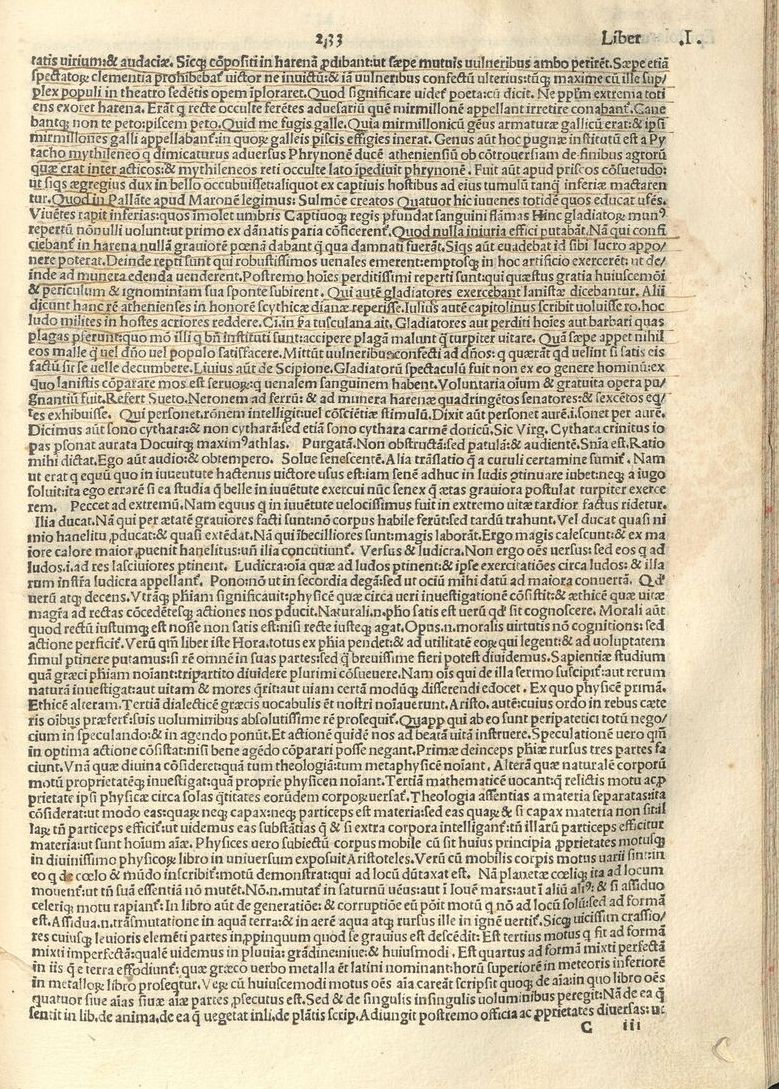 233 Liber .I.
tatis uirium:& audaciæ. Sicq; cōpositi in harenā ꝓdibant:ut sæpe mutuis uulneribus ambo perirēt. Sæpe etiā
spectatorꝝ clementia prohibebat̄ uictor ne inuictū:& iā uulneribus confectū ulterius:tūq; maxime cū ille sup/
plex populi in theatro sedētis opem īploraret. Quod significare uidet̄ poeta:cū dicit. Ne pp̄lm extremia toti
ens exoret harena. Erāt q recte occulte ferētes aduersariū quē mirmillonē appellant irretire conabant̄. Cane
bantq; non te peto:piscem peto. Quid me fugis galle. Quia mirmillonicū gēus armaturæ gallicū erat:& ipsi
mirmillones galli appellabant̄:in quorꝝ galeis piscis effigies inerat. Genus aūt hoc pugnæ institutū est a Py
tacho mythileneo q dimicaturus aduersus Phrynonē ducē atheniensiū ob cōtrouersiam de finibus agrorū
quæ erat inter acticos:& mythileneos reti occulte lato īpediuit phrynonē. Fuit aūt apud priscos cōsuetudo:
ut siqs ægregius dux in bello occubuisset:aliquot ex captiuis hostibus ad eius tumulū tanq̄ inferiæ mactaren
tur. Quod in Pallāte apud Maronē legimus: Sulmōe creatos Quatuor hic iuuenes totidē quos educat ufēs.
Viuētes rapit inferias:quos īmolet umbris Captiuoq; regis pfundat sanguini flāmas Hinc gladiatorꝝ munꝰ
repertū nōnulli uolunt:ut primo ex dānatis paria cōficerent̄. Quod nulla iniuria effici putabāt. Nā qui confi
ciebant̄ in harena nullā grauiorē pœnā dabant q̄ qua damnati fuerāt. Siqs aūt euadebat id sibi lucro appo/
nere poterat. Deinde repti sunt qui robustissimos uenales emerent:emptosq; in hoc artificio exercerēt: ut de/
inde ad munera edenda uenderent. Postremo hoīes perditissimi reperti sunt:qui quæstus gratia huiuscemōi
& periculum & ignominiam sua sponte subirent. Qui autē gladiatores exercebant lanistæ dicebantur. Alii
dicunt hanc rē athenienses in honorē scythicæ dianæ reperisse. Iulius autē capitolinus scribit uoluisse ro. hoc
ludo milites in hostes acriores reddere. Ci. in p̄a tusculana ait. Gladiatores aut perditi hoīes aut barbari quas
plagas pferunt:quo mō illi q bn̄ instituti sunt:accipere plagā malunt q̄ turpiter uitare. Quā sæpe appet nihil
eos malle q̄ uel dn̄o uel populo satisfacere. Mittūt uulneribus confecti ad dn̄os: q quærāt qd uelint si satis eis
factū sit se uelle decumbere. Liuius aūt de Scipione. Gladiatorū spectaculū fuit non ex eo genere hominū:ex
quo lanistis cōparare mos est seruorꝝ:q uenalem sanguinem habent. Voluntaria oīum & gratuita opera pu/
gnantiū fuit. Refert Sueto. Neronem ad ferrū: & ad munera harenæ quadringētos senatores:& sexcētos eq/
tes exhibuisse. Qui personet. rōnem intelligit:uel cōsciētiæ stimulū. Dixit aūt personet aurē.i. sonet per aurē.
Dicimus aūt sono cythara:& non cytharā:sed etiā sono cythara carmē doricū. Sic Virg. Cythara crinitus io
pas psonat aurata Docuit quæ maximꝰ athlas. Purgatā. Non obstructā:sed patulā:& audientē. Snīa est. Ratio
mihi dictat. Ego aūt audio:& obtempero. Solue senescentē. Alia trāslatio q̄ a curuli certamine sumit̄. Nam
ut erat q equū quo in iuuētute hactenus uictore usus est:iam senē adhuc in ludis ꝯtinuare iubet:neq; a iugo
soluit:ita ego errarē si ea studia q̄ belle in iuuētute exercui nūc senex q̄ ætas grauiora postulat turpiter exerce
rem. Peccet ad extremū. Nam equus q in iuuētute uelocissimus fuit in extremo uitæ tardior factus ridetur.
Ilia ducat. Nā qui per ætatē grauiores facti sunt:nō corpus habile ferūt:sed tardū trahunt. Vel ducat quasi ni
mio hanelitu ꝓducat:& quasi extēdat. Nā qui ībecilliores sunt:magis laborāt. Ergo magis calescunt:& ex ma
iore calore maior ꝓuenit hanelitus:un̄ ilia concutiunt̄. Versus & ludicra. Non ergo oēs uersus: sed eos q ad
ludos.i. ad res lasciuiores ptinent. Ludicra:oīa quæ ad ludos ptinent:& ipse exercitatiões circa ludos: & illa
rum instr̄a ludicra appellant̄. Pono:nō ut in secordia degā:sed ut ociū mihi datū ad maiora conuertā. Qd
uerū atq; decens. Vtrāq; phīam significauit:physicē quæ circa ueri inuestigationē cōsistit:& æthicē quæ uitæ
magr̄a ad rectas cōcedētesq; actiones nos pducit. Naturali.n. pho satis est uerū qd sit cognoscere. Morali aūt
quod rectū iustumq; est nosse non satis est:nisi recte iusteq; agat. Opus.n. moralis uirtutis nō cognitions: sed
actione perficit̄. Verū qm̄ liber iste Hora. totus ex phīa pendet:& ad utilitatē eorꝝ qui legent:& ad uoluptatem
simul ptinere putamus:si rē omnē in suas partes:sed q̄ breuissime fieri potest diuidemus. Sapientiæ studium
quā græci phīam noīant:tripartito diuidere plurimi cōsueuere. Nam oīs qui de illa sermo suscipit̄:aut rerum
naturā inuestigat:aut uitam & mores q̄rit:aut uiam certā modūq; disserendi edocet. Ex quo physicē primā.
Ethicē alteram. Tertiā dialecticē græcis uocabulis ēt nostri noīauerunt. Aristo. autē:cuius ordo in rebus cæte
ris oībus præfert̄:suis uoluminibus absolutissime rē prosequit̄. Quapp qui ab eo sunt peripatetici totū nego/
cium in speculando:& in agendo ponūt. Et actionē quidē nos ad beatā uitā instruere. Speculationē uero qm̄
in optima actione cōsistat:nisi bene agēdo cōparari posse negant. Primæ deinceps phīæ rursus tres partes fa
ciunt. Vnā quæ diuina cōsideret:quā tum theologiā:tum metaphysicē noīant. Alterā quæ naturalē corporū
motū proprietatēq; inuestigat:quā proprie physicen noīant. Tertiā mathematicē uocant:q̄ relictis motu ac ꝓ
prietate ipsi physicæ circa solas q̄titates eorūdem corporꝝ uersat̄. Theologia assentias a materia separatas:ita
cōsiderat:ut modo eas:quarꝝ neq; capax:neq; particeps est materia:sed eas quarꝝ & si capax materia non sit:il
larꝝ tn̄ particeps efficit̄:ut uidemus eas substātias q̄ & si extra corpora intelligant̄:tn̄ illarū particeps efficitur
materia:ut sunt hoīum aīæ. Physices uero subiectū corpus mobile cū sit huius principia ꝓprietates motusq;
in diuinissimo physicorꝝ libro in uniuersum exposuit Aristoteles. Verū cū mobilis corpis motus uarii sint:in
eo q de cœlo & mūdo inscribit̄:motū demonstrat:qui ad locū dūtaxat est. Nā planetæ cœliq; ita ad locum
mouent̄:ut tn̄ suā essentiā nō mutēt. Nō.n. mutat̄ in saturnū uēus:aut ī Ioue mars:aut ī aliū aliꝰ: & si assiduo
celeriq; motu rapiant̄. In libro aūt de generatiōe: & corruptiōe eū pōit motū q nō ad locū solū:sed ad formā
est. Assidua.n. trāsmutatione in aquā terra:& in aerē aqua atq; rursus ille in ignē uertit̄. Sicq; uicissim crassio/
res cuiusq; leuioris elemēti partes in ꝓpinquum quod se grauius est descēdit: Est tertius motus q fit ad formā
mixti imperfectā:qualē uidemus in pluuia: grādine:niue:& huiusmodi. Est quartus ad formā mixti perfectā
in iis q̄ e terra effodiunt̄: quæ græco uerbo metalla ēt latini nominant:horū superiorē in meteoris inferiorē
in metallorꝝ libro proseqtur. Verꝝ cū huiuscemodi motus oēs aīa careāt scripsit quoq; de aīa:in quo libro oēs
quatuor siue aīas siue aīæ partes ꝓsecutus est. Sed & de singulis in singulis uoluminibus peregit: Nā de ea q̄
sentit in lib. de anima, de ea q̄ uegetat in li. de plātis scrip. Adiungit postremo officia ac ꝓprietates diuersas: ut
C iii